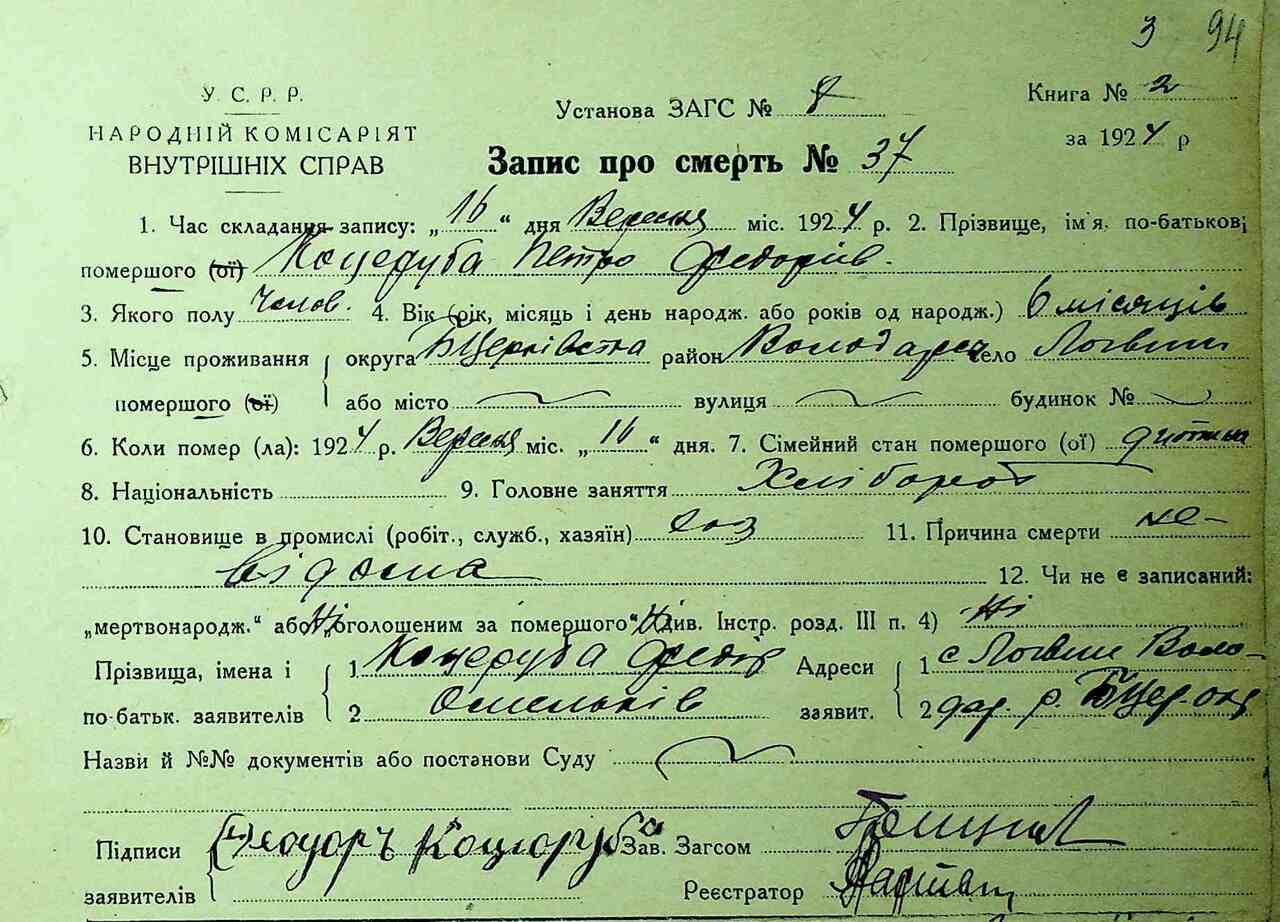 3 94
У. С. Р. Р.
НАРОДНІЙ КОМІСАРІЯТ
ВНУТРІШНІХ СПРАВ
Установа ЗАГС № 8
Книга № 2
за 1924 р
Запис про смерть № 37
1. Час складання запису: „16“ дня Вересня міс. 1924 р. 2. Прізвище, ім'я, по-батькові
помершого (ої) Коцеруба Петро Федорів.
3. Якого полу Челов. 4. Вік (рік, місяць і день народж. або років од народж.) 6 місяців
5. Місце проживання округа БЦерківська район Володарс село Логвин
помершого (ої) або місто вулиця будинок №
6. Коли помер (ла): 1924 р. Вересня міс. „16“ дня. 7. Сімейний стан помершого (ої) дитина
8. Національність 9. Головне заняття Хлібороб
10. Становище в промислі (робіт., служб., хазяїн) хоз 11. Причина смерти не-
відома 12. Чи не є записаний:
„мертвонародж.“ або Ні „оголошеним за помершого“ Ні (див. Інстр. розд. III п. 4) Ні
Прізвища, імена і 1 Коцеруба Федір Адреси 1 с Логвин Воло-
по-батьк. заявителів 2 Омельків заявит. 2 дар. р. БЦер. окр
Назви й №№ документів або постанови Суду
Підписи Феодоръ Коцюруба Зав. Загсом
заявителів Реєстратор